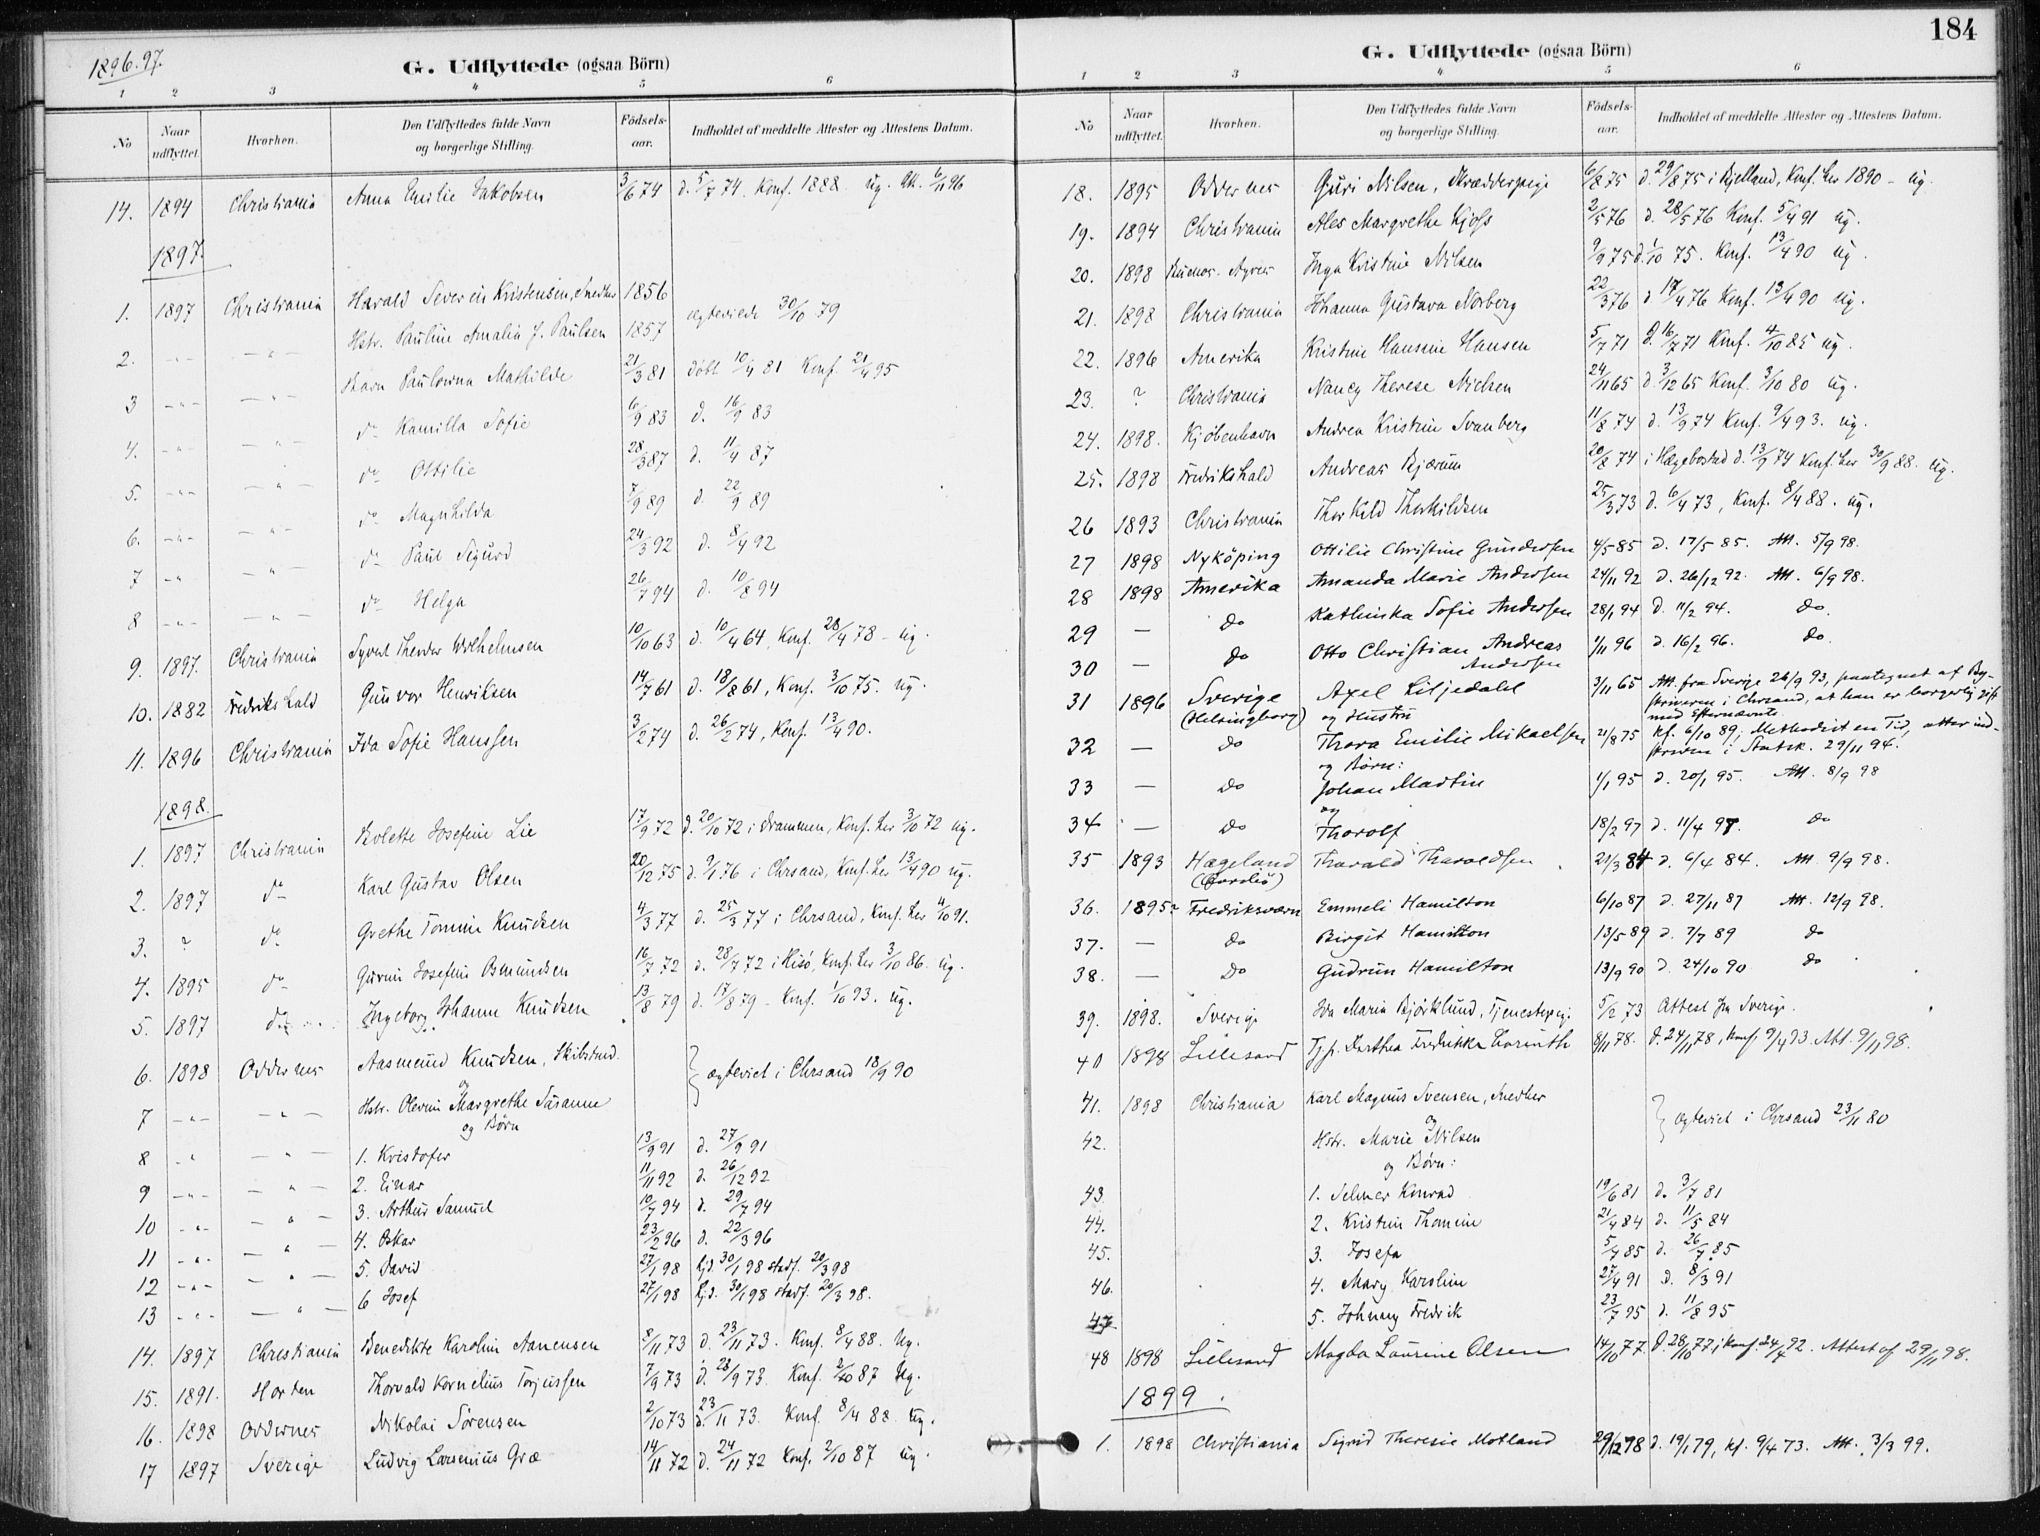 1896.97.
G. Udflyttede (ogsaa Börn)
1 2 3 4 5 6
No Naar udflyttet. Hvorhen. Den Udflyttedes fulde Navn og borgerlige Stilling. Födsels-aar. Indholdet af meddelte Attester og Attestens Datum.
14. 1894 Christiania Anna Emilie Jakobsen 3/6 74 d. 5/7 74. Konf. 1888. Ug. Att. 6/11 96
1897.
1. 1897 Christiania Harald Severin Kristensen, Snedker 1856
2. -"- -"- Hstr. Pauline Amalia J. Paulsen 1857 ægteviede 30/10 79
3 -"- -"- Barn Paulowna Mathilde 21/3 81 döbt 10/4 81 Konf. 21/4 95
4. -"- -"- do Kamilla Sofie 6/9 83 d. 16/9 83
5. -"- -"- do Ottilie 28/3 87 d. 11/4 87
6. -"- -"- do Magnhilda 7/9 89 d. 22/9 89
7 -"- -"- do Paul Sigurd 24/3 92 d. 8/4 92
8 -"- -"- do Helga 26/7 94 d. 10/8 94
9. 1897. Christiania Syvert Theodor Wilhelmsen 10/10 63 d. 10/4 64, Konf. 28/4 78 - Ug.
10. 1882 Fredrikshald Gunvor Henriksen 14/7 61 d. 18/8 61, Konf. 3/10 75. Ug.
11. 1896 Christiania Ida Sofie Hanssen 3/2 74 d. 26/2 74, Konf. 13/4 90.
1898.
1. 1897 Christiania Bolette Josefine Lie 17/9 72 d. 20/10 72 i Drammen, Konf. her 3/10 72 ug.
2. 1897 do Karl Gustav Olsen 20/12 75 d. 9/1 76 i Chrsand, Konf. her 13/4 90 ug.
3. ? do Grethe Tomine Knudsen 4/3 77 d. 25/3 77 i Chrsand, Konf. her 4/10 91.
4. 1895 do Gurine Josefine Osmundsen 16/7 72 d. 28/7 72 i Hisö, Konf. her 3/10 86. ug.
5. 1897 do Ingeborg Johanne Knudsen 13/8 79 d. 17/8 79 - Konf. 1/10 93. Ug.
6. 1898 Oddernes Aasmund Knudsen, Skibstmd.
og } ægteviet i Chrsand 18/9 90
7 -"- -"- Hstr. Olevine Margrethe Susanne
og Børn
8 -"- -"- 1. Kristofer 13/9 91 d. 27/9 91
9 -"- -"- 2. Einar 11/11 92 d. 26/12 92
10 -"- -"- 3. Arthur Samuel 10/7 94 d. 29/7 94
11 -"- -"- 4. Oskar 23/2 96 d. 22/3 96
12 -"- -"- 5. David 27/1 98 hjd. 30/1 98 stadf. 20/3 98
13 -"- -"- 6 Josef 27/1 98 hjd. 30/1 98 stadf. 20/3 98.
14. 1897 Christiania Benedikte Karoline Aanensen 8/11 73 d. 23/11 73. Konf. 8/4 88. Ug.
15. 1891. Horten Thorvald Kornelius Torjussen 7/9 73 d. 28/9 73. Konf. 2/10 87 Ug.
16. 1898 Oddernes Nikolai Sørensen 2/10 73 d. 23/11 73. Konf. 8/4 88. Ug.
17 1897 Sverige Ludvig Larsenius Græ 14/11 72 d. 24/11 72 Konf. 2/10 87 Ug.
184
G. Udflyttede (ogsaa Börn)
1 2 3 4 5 6
No Naar udflyttet. Hvorhen. Den Udflyttedes fulde Navn og borgerlige Stilling. Födsels-aar. Indholdet af meddelte Attester og Attestens Datum.
18. 1895 Oddernes Guri Nilsen, Skrædderpige 6/8 75 d. 29/8 75 i Bjelland, Konf. her 1890 - Ug.
19. 1894 Christiania Ales Margrethe Kjoss 2/5 76 d. 28/5 76 Konf. 5/4 91 ug.
20. 1898 Buenos-Ayres Inga Kristine Nilsen 9/9 75 d. 1/10 75. Konf. 13/4 90 Ug.
21. 1898 Christiania Johanna Gustava Norberg 22/3 76 d. 17/4 76 Konf. 13/4 90 Ug.
22. 1896 Amerika Kristine Hansine Hansen 5/7 71 d. 16/7 71 Konf. 4/10 85 ug.
23. ? Christiania Nancy Therese Nielsen 24/11 65 d. 3/12 65 Konf. 3/10 80 Ug.
24. 1898. Kjøbenhavn Andrea Kristine Svanberg 11/8 74 d. 13/9 74 Konf. 9/4 93. ug.
25. 1898 Fredrikshald Andreas Bjærum 20/8 74 i Hægebostad d. 13/9 74 Konf. her 30/9 88. Ug.
26 1893 Christiania Thorkild Thorkildsen 25/3 73 d. 6/4 73, Konf. 8/4 88. Ug.
27 1898 Nyköping Ottilie Christine Gundersen 4/5 85 d. 17/5 85. Att. 5/9 98.
28 1898 Amerika Amanda Marie Andersen 24/11 92 d. 26/12 92. Att. 6/9 98.
29 — do Kathinka Sofie Andersen 28/1 94 d. 11/2 94. do.
30 — do Otto Christian Andreas Andersen 1/11 96 d. 16/2 96. do.
31 1896 Sverige (Helsingborg) Axel Liljedahl og Hustru 3/11 65 Att. fra Sverige 26/9 93, paategnet af By-
skriveren i Chrsand, at han er borgerlig gift
med Efternævnte.
32 — do Thora Emilie Mikaelsen 21/8 75 Kf. 6/10 89; Methodist en Tid, atter ind-
og Børn: skreven i Statsk. 29/11 94.
33 — do Johan Martin 1/1 95 d. 20/1 95. Att. 8/9 98
og
34 — do Thorolf 18/2 97 d. 11/4 97. do
35 1893 Hægeland Tharald Tharaldsen 21/3 84 d. 6/4 84. Att. 9/9 98.
36. 1895? Fredriksværn Emmeli Hamilton 6/10 87 d. 27/11 87 Att. 12/9 98.
37. — do Birgit Hamilton 13/5 89 d. 7/7 89 do
38. — do Gudrun Hamilton 13/9 90 d. 24/10 90 do
39. 1898. Sverige Ida Maria Bjørklund, Tjenestepige 5/2 73 Attest fra Sverige.
40 1898 Lillesand Tjp. Dorthea Fredrikke Corinth 8/11 78. d. 24/11 78, Konf. 9/4 93. Att. 9/11 98.
41. 1898 Christiania Karl Magnus Svensen, Snedker
og } ægteviet i Chrsand 23/11 80
42. Hstr. Marie Nilsen
og Børn:
43 1. Selmer Konrad 19/6 81 d. 3/7 81
44. 2. Kristine Thomine 21/4 84 d. 11/5 84
45. 3. Josefa 5/7 85 d. 26/7 85
46. 4. Mary Karoline 27/4 91 d. 8/3 91
47 5. Johnny Fredrik 23/7 95 d. 11/8 95
48 1898 Lillesand Magda Laurine Olsen 14/10 77. d. 28/10 77; Konf. 24/4 92. Attest af 29/11 98.
1899.
1. 1898 Christiania Sigrid Theresie Motland 29/12 78 d. 19/1 79, kf. 9/4 73. Att. 3/3 99.